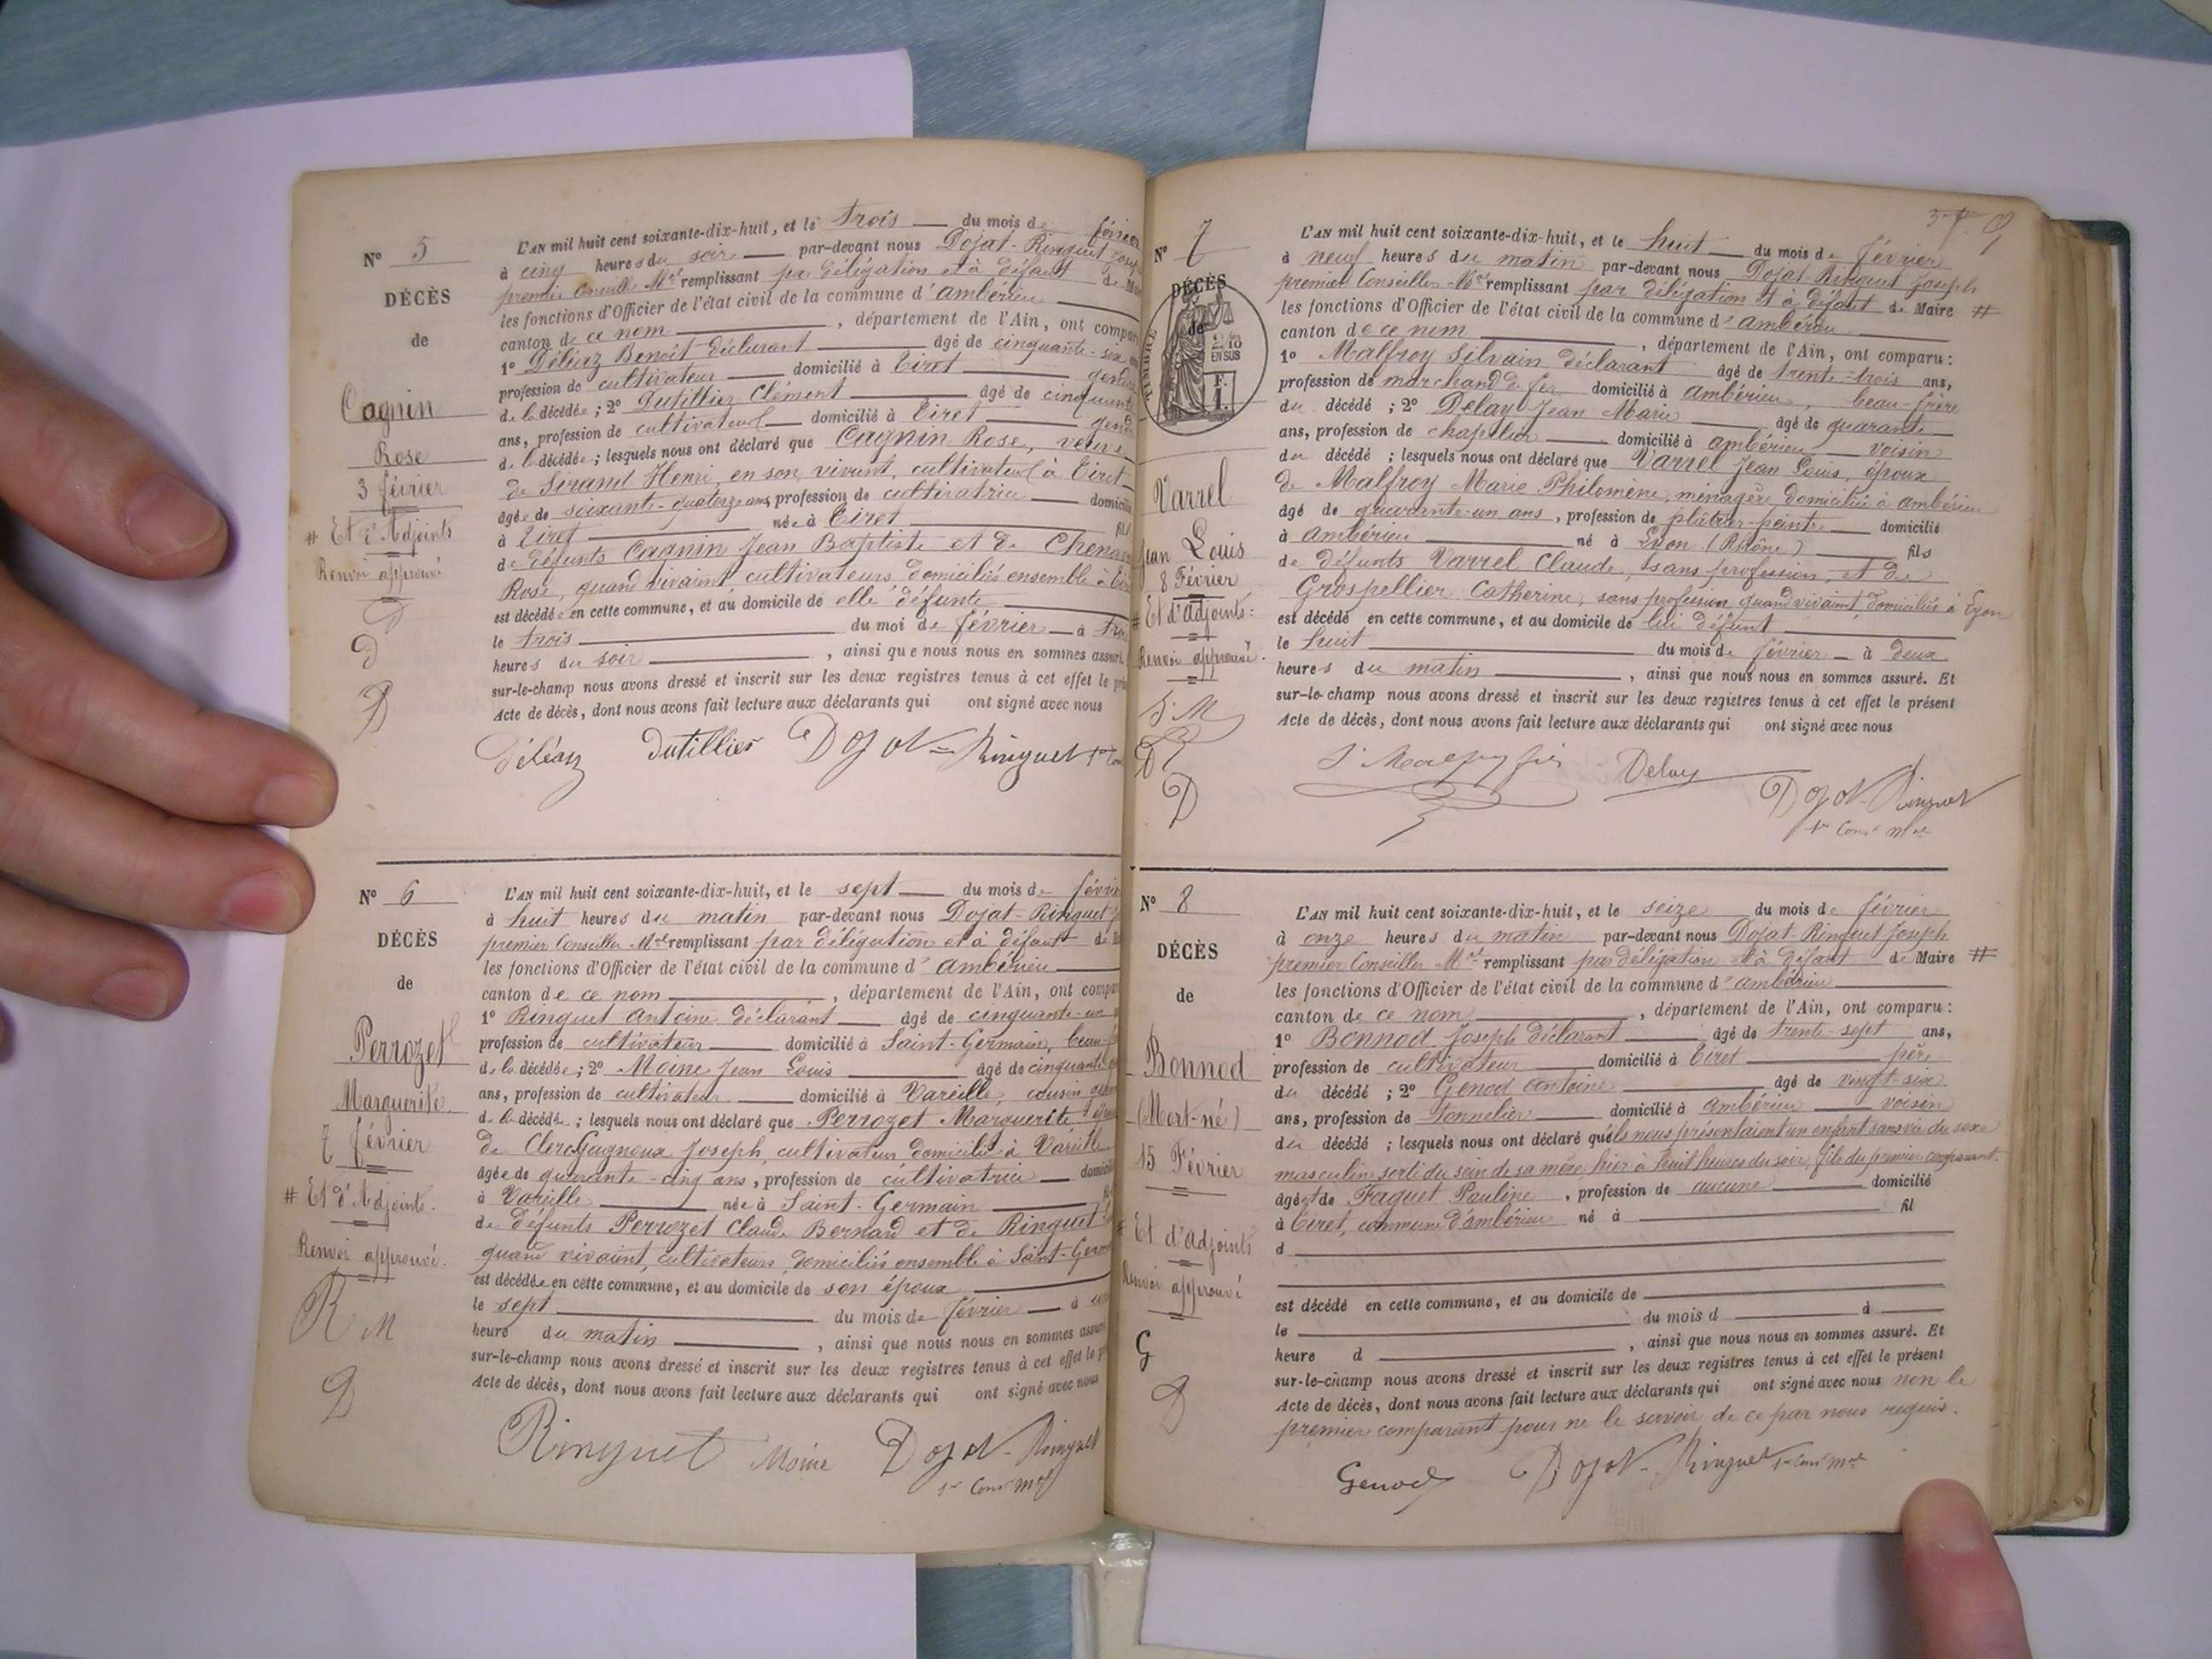 N° 5
DÉCÈS
de
Cagnin
Rose
3 février
# Et d'Adjoints
Renvoi approuvé
D
D
D
L'AN mil huit cent soixante-dix-huit, et le trois du mois de février
à cinq heures du soir par-devant nous Dojat-Ringuet Joseph
premier Conseiller Mal remplissant par délégation et à défaut de
les fonctions d'Officier de l'état civil de la commune d'ambérieu
canton de ce nom, département de l'Ain, ont compar
1° Déléaz Benoit déclarant âgé de cinquante-six
profession de cultivateur domicilié à Tiret gendre
de la décédée; 2° Dutillier Clément âgé de cinquante
ans, profession de cultivateur domicilié à Tiret gendre
de la décédée; lesquels nous ont déclaré que Cagnin Rose, veuve
de Sirand Henri, en son vivant, cultivateur à Tiret
âgée de soixante-quatorze ans, profession de cultivatrice domicili
à Tiret née à Tiret fil
de défunts Cagnin Jean Baptiste et de
Rose, quand vivaient cultivateurs domiciliés ensemble à
est décédée en cette commune, et au domicile de elle défunte
le trois du moi de février à
heures du soir, ainsi que nous nous en sommes assuré.
sur-le-champ nous avons dressé et inscrit sur les deux registres tenus à cet effet le
Acte de décès, dont nous avons fait lecture aux déclarants qui ont signé avec nous
Déléaz Dutillier Dojat-Ringuet
N° 6
DÉCÈS
de
Perrozet
Marguerite
7 février
# Et d'Adjoints.
Renvoi approuvé.
R M
D
L'AN mil huit cent soixante-dix-huit, et le sept du mois de
à huit heures du matin par-devant nous Dojat-Ringuet
premier Conseiller Mal remplissant par délégation et à défaut de
les fonctions d'Officier de l'état civil de la commune d'ambérieu
canton de ce nom, département de l'Ain, ont compar
1° Ringuet Antoine déclarant âgé de cinquante-un
profession de cultivateur domicilié à Saint-Germain, beau-
de la décédée; 2° Moine Jean Louis âgé de cinquante
ans, profession de cultivateur domicilié à Vareille, cousin
de la décédée; lesquels nous ont déclaré que Perrozet Marguerite
de Clerc Gagneux Joseph, cultivateur domicilié à Vareille
âgée de quarante-cinq ans, profession de cultivatrice
à Vareille née à Saint-Germain
de défunts Perrozet Claude Bernard et de Ringuet
quand vivaient, cultivateurs, domiciliés ensemble à Saint-
est décédée en cette commune, et au domicile de son époux
le sept du mois de février à
heure du matin, ainsi que nous nous en sommes
sur-le-champ nous avons dressé et inscrit sur les deux registres tenus à cet effet le
Acte de décès, dont nous avons fait lecture aux déclarants qui ont signé avec nous
Ringuet Moine Dojat-Ringuet
1er Consr Mal
N° 7
DÉCÈS
de
TIMBRE
2/10
EN SUS
Varrel
Jean Louis
8 Février
# Et d'adjoints:
Renvoi approuvé.
S. M
D
D
L'AN mil huit cent soixante-dix-huit, et le huit du mois de février
à neuf heures du matin par-devant nous Dojat-Ringuet Joseph
premier Conseiller Mal remplissant par délégation et à défaut de Maire #
les fonctions d'Officier de l'état civil de la commune d'ambérieu
canton de ce nom, département de l'Ain, ont comparu:
1° Malfroy Silvain déclarant âgé de trente-trois ans,
profession de marchand de fer domicilié à ambérieu, beau-frère
du décédé; 2° Delay Jean Marie âgé de quarante
ans, profession de chapelier domicilié à ambérieu voisin
du décédé; lesquels nous ont déclaré que Varrel Jean Louis, époux
de Malfroy Marie Philomène, ménagère domiciliée à ambérieu
âgé de quarante-un ans, profession de plâtrier-peintre domicilié
à ambérieu né à Lyon (Rhône) fils
de défunts Varrel Claude, sans profession, et de
Grospellier Catherine, sans profession quand vivaient, domiciliés à Lyon
est décédé en cette commune, et au domicile de lui défunt
le huit du mois de février à deux
heures du matin, ainsi que nous nous en sommes assuré. Et
sur-le-champ nous avons dressé et inscrit sur les deux registres tenus à cet effet le présent
Acte de décès, dont nous avons fait lecture aux déclarants qui ont signé avec nous
Delay
Dojat-Ringuet
1er Consr Mal
N° 8
DÉCÈS
de
Bonnod
(Mort-né)
15 Février
# Et d'adjoints
Renvoi approuvé
G
D
L'AN mil huit cent soixante-dix-huit, et le seize du mois de février
à onze heures du matin par-devant nous Dojat-Ringuet Joseph
premier Conseiller Mal remplissant par délégation et à défaut de Maire #
les fonctions d'Officier de l'état civil de la commune d'ambérieu
canton de ce nom, département de l'Ain, ont comparu:
1° Bonnod Joseph déclarant âgé de trente-sept ans,
profession de cultivateur domicilié à Tiret père
du décédé; 2° Genod Antoine âgé de vingt-six
ans, profession de tonnelier domicilié à ambérieu voisin
du décédé; lesquels nous ont déclaré qu'ils nous présentaient un enfant sans vie du sexe
masculin sorti du sein de sa mère, hier à huit heures du soir, fils du premier comparant
âgé et de Faguet Pauline, profession de aucune domicilié
à Tiret, commune d'ambérieu né à fil
d
est décédé en cette commune, et au domicile de
le du mois d à
heure d, ainsi que nous nous en sommes assuré. Et
sur-le-champ nous avons dressé et inscrit sur les deux registres tenus à cet effet le présent
Acte de décès, dont nous avons fait lecture aux déclarants qui ont signé avec nous non le
premier comparant pour ne le savoir de ce par nous requis.
Genod Dojat-Ringuet 1er Consr Mal